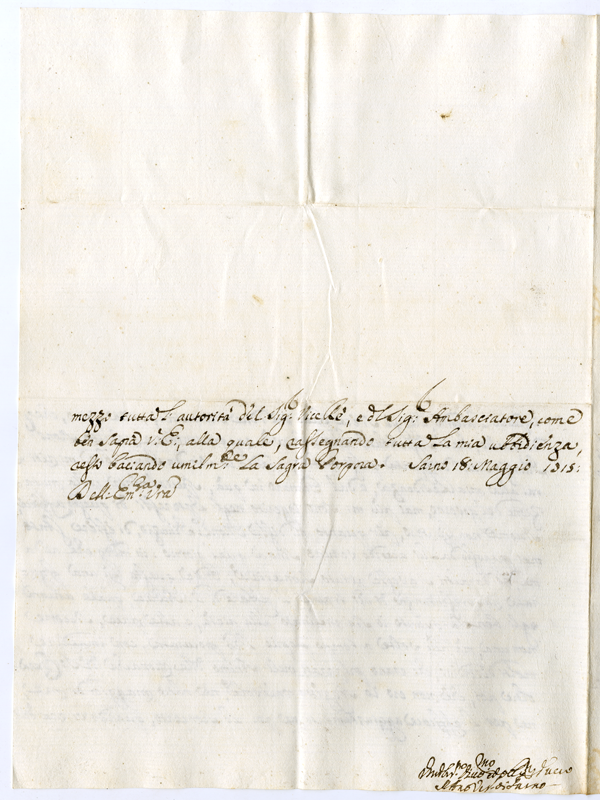 mezzo tutta l'autorità del Sig.r Vicerè, e dl Sig.r Ambasciatore, come
ben saprà V.E., alla quale, rassegnando tutta la mia ubbidienza,
resto baciando umilm.te la Sagra Porpora. Sarno 18: Maggio 1715:
Dell' Em.za V.ra